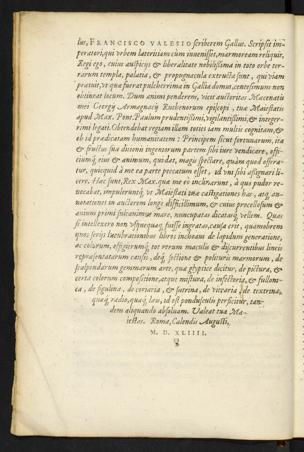 lus, FRANCISCO VALESIO scriberem Gallus. Scripsit im-
peratori, qui vrbem lateritiam cùm inuenisset, marmoream reliquit,
Regi ego, cuius auspicijs & liberalitate nobilissima in toto orbe ter-
rarum templa, palatia, & propugnacula extructa sunt, qui viam
prauit, vt qua parrat pulcherrima in Gallia domus, centesimum non
Dum animo penderem, vicit auctoritas Mecœnatis
mei Georgij Armagnacij Ruthenorum episcopi, tua Maiestatis
apud Max. Pont. Paulum prudentissimi, vigilantissimi, & integer-
rimi legati. Ostendebat regiam illam toties iam multis cognitam, &
ob id prædicatam humanitatem: Principem sicuti fortunarum, ita
& fructus sua ditione ingeniorum partem sibi iure vendicare, offi-
ciumq́; eius & animum, qui dat, magis spectare, quàm quod offera-
tur, quicquid à me ea parte peccatum esset, id vni sibi assignari li-
cere. Hæc sunt, Rex Max. quæ me eò inclinarunt, à quo pudor re-
uocabat, impulerunt q́; vt Maiestati tuæ castigationes has, atq; an-
notationes in auctorem longè difficillimum, & cuius præcellosum &
animi primi vulcanúmve mare, nuncupatas dicatasq́; vellem. Quas
si intellexero non vsquequaq; fuisse ingratas, causa erit, quamobrem
opus serijs lucubrationibus libros inchoem de lapidum generatione,
ac colorum, effigierumq́; tot rerum maculis & discurrentibus lineis
repræsentatarum causis, deq́; sectione & politurie marmorum, de
scalpendarum gemmarum arte, quæ glyptice dicitur, de pictura, &
certa colorum compositione, atque mistura, de infectoria, & fullonica,
de figulina, de coriaria, & sutrina, de vitraria, de textrina,
quæq́; radio, quæq́; lacu, id est pondusculo perficitur, tan-
dem aliquando absoluam. Valeat tua Ma-
iestas. Romæ, Calendis Augusti,
M. D. XLIIII.